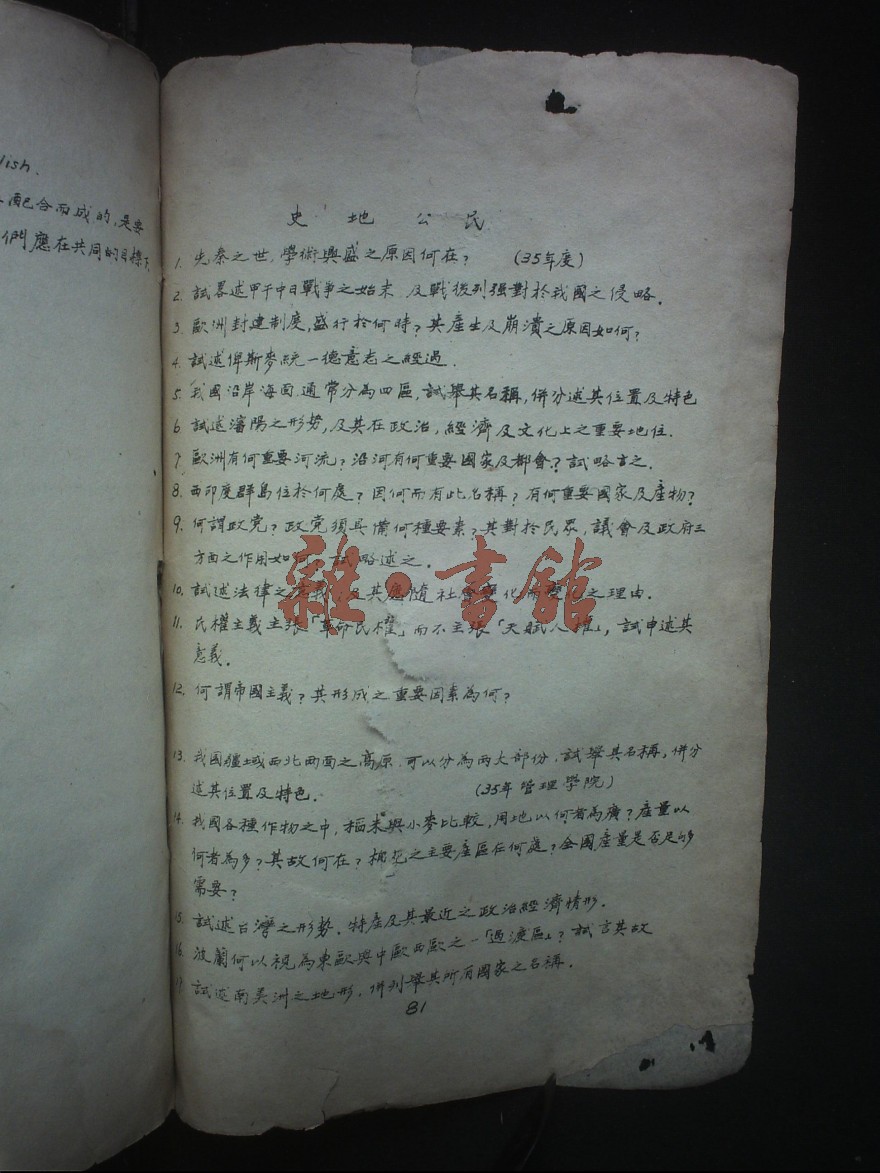 lish.
配合而成的,是要
們應在共同的目標下
史地公民
1. 先秦之世,學術興盛之原因何在? (35年度)
2. 試畧述甲午中日戰爭之始末 及戰後列强對於我國之侵略.
3. 歐洲封建制度,盛行於何時?其產生及崩潰之原因如何?
4. 試述俾斯麥統一德意志之經過.
5. 我國沿岸海面,通常分為四區,試舉其名稱,併分述其位置及特色
6 試述瀋陽之形勢,及其在政治,經濟及文化上之重要地位.
7 歐洲有何重要河流?沿河有何重要國家及都會?試略言之.
8. 西印度群島位於何處?因何而有此名稱?有何重要國家及產物?
9. 何謂政党?政党須具備何種要素?其對於民眾,議會及政府三
方面之作用如何 試略述之.
10. 試述法律之意義,及其應隨社會變化而變化之理由.
11. 民權主義主張「革命民權」而不主張「天賦人權」,試申述其
意義.
12. 何謂帝國主義?其形成之重要因素為何?
13. 我國疆域西北兩面之高原,可以分為兩大部份.試舉其名稱,併分
述其位置及特色. (35年管理學院)
14. 我國各種作物之中,稻米與小麥比較,用地以何者為廣?產量以
何者為多?其故何在?棉花之主要產區在何處?全國產量是否足够
需要?
15. 試述台灣之形勢.特產及其最近之政治經濟情形.
16. 波蘭何以視為東歐與中歐西歐之一「過渡區」?試言其故
17. 試述南美洲之地形,併列舉其所有國家之名稱.
81
雜·書館